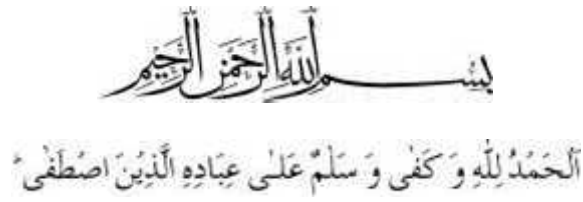 بِسْمِ اللّٰهِ الرَّحْمٰنِ الرَّحِيْمِ
اَلْحَمْدُ لِلّٰهِ وَ كَفٰى وَ سَلٰمٌ عَلٰى عِبَادِهِ الَّذِيْنَ اصْطَفٰى